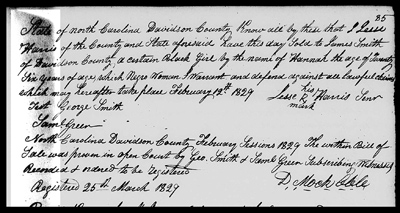 35
State of North Carolina Davidson County Know all by these that I Jesse
Harris of the County and State aforesaid have this day Sold to James Smith
of Davidson County a certain Black Girl by the name of Hannah the age of Twenty
Six years of age, which Negro Woman I warrant and defend against all lawful claims
which may hereafter take place February 12th 1829
his
Jesse X Harris Senr
mark
Test George Smith
Saml Green
North Carolina Davidson County February Sessions 1829 The within Bill of
Sale was proven in open Court by Geo. Smith & Saml Green Subscribing Witnesses
Recorded & ordered to be registered
D. Mock Clk
Registered 25th March 1829